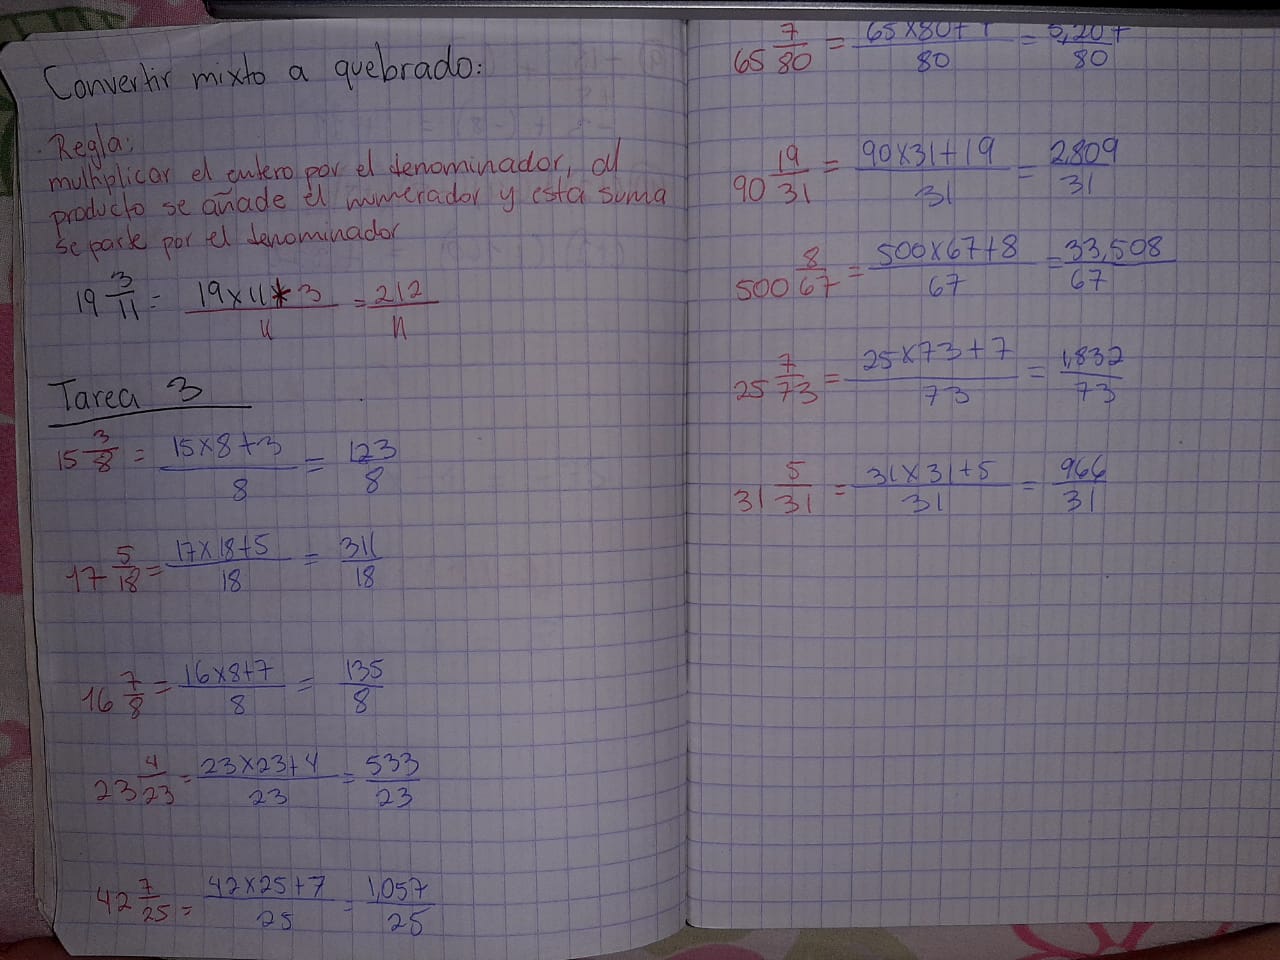 Convertir mixto a quebrado:
Regla:
multiplicar el entero por el denominador, al
producto se añade el numerador y esta suma
se parte por el denominador
19 3/11 = 19x11+3/11 = 212/11
Tarea 3
15 3/8 = 15x8+3/8 = 123/8
17 5/18 = 17x18+5/18 = 311/18
16 7/8 = 16x8+7/8 = 135/8
23 4/23 = 23x23+4/23 = 533/23
42 7/25 = 42x25+7/25 = 1,057/25
65 7/80 = 65x80+7/80 = 5,207/80
90 19/31 = 90x31+19/31 = 2,809/31
500 8/67 = 500x67+8/67 = 33,508/67
25 7/73 = 25x73+7/73 = 1,832/73
31 5/31 = 31x31+5/31 = 966/31